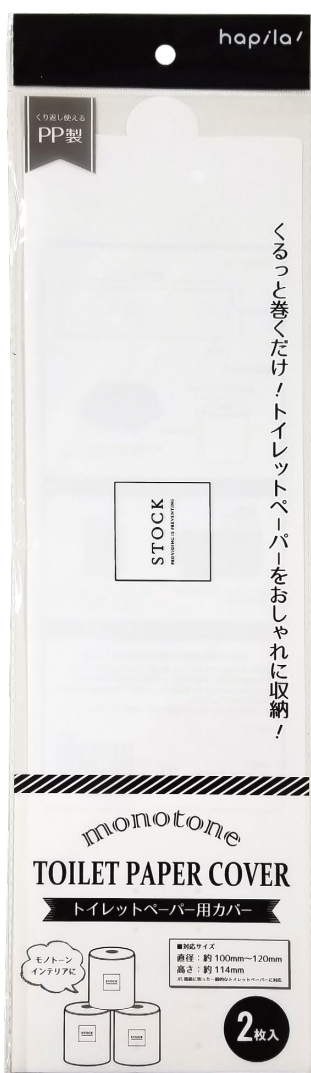 hapila!
くり返し使える
PP製
くるっと巻くだけ!トイレットペーパーをおしゃれに収納!
STOCK
PROVIDING IS PREVENTING
monotone
TOILET PAPER COVER
トイレットペーパー用カバー
モノトーン
インテリアに
STOCK
STOCK
STOCK
■対応サイズ
直径:約100mm〜120mm
高さ:約114mm
JIS規格に則った一般的なトイレットペーパーに対応
2枚入